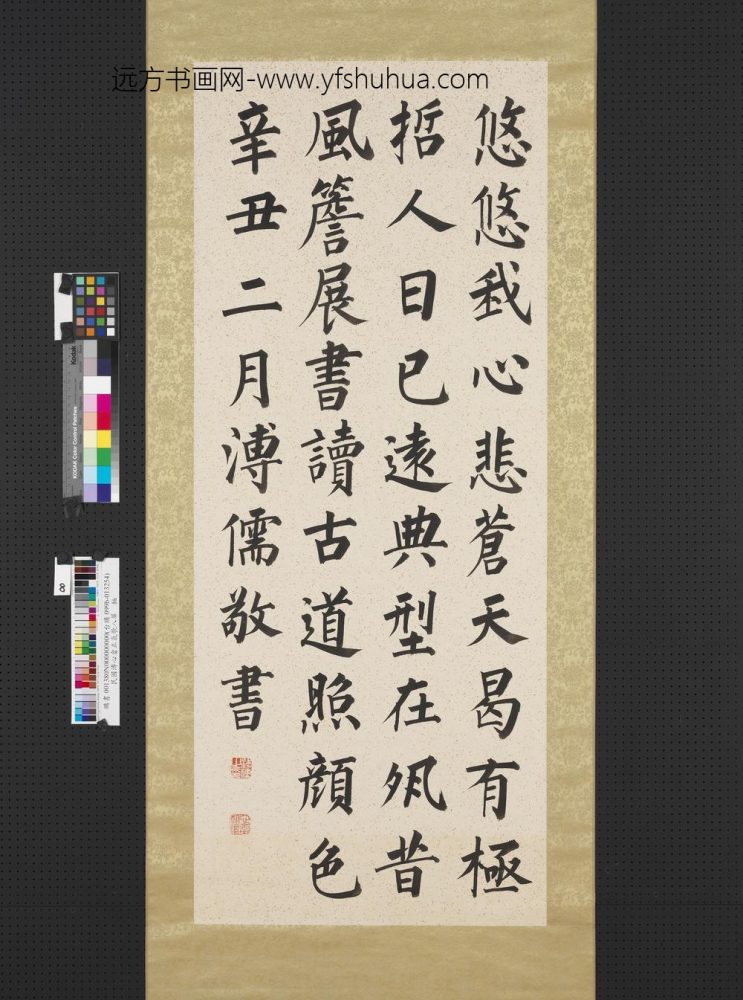 远方书画网-www.yfshuhua.com
悠悠我心悲蒼天曷有極
哲人日已遠典型在夙昔
風簷展書讀古道照顏色
辛丑二月溥儒敬書
Kodak
KODAK Color Control Patches
8